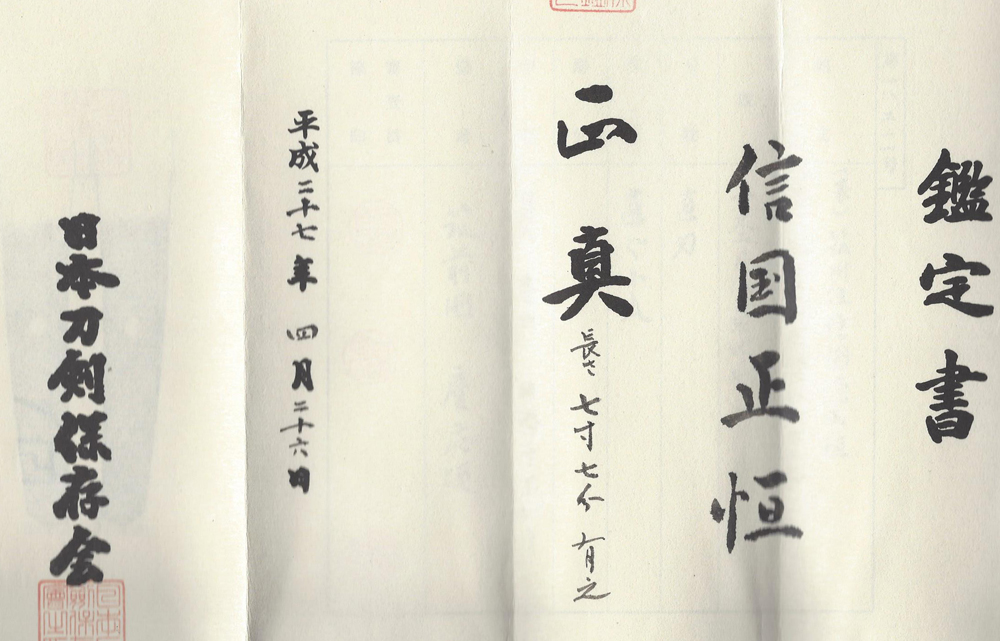 鑑定書
信国正恒
正真
長さ七寸七分有之
平成二十七年 四月二十六日
日本刀剣保存会